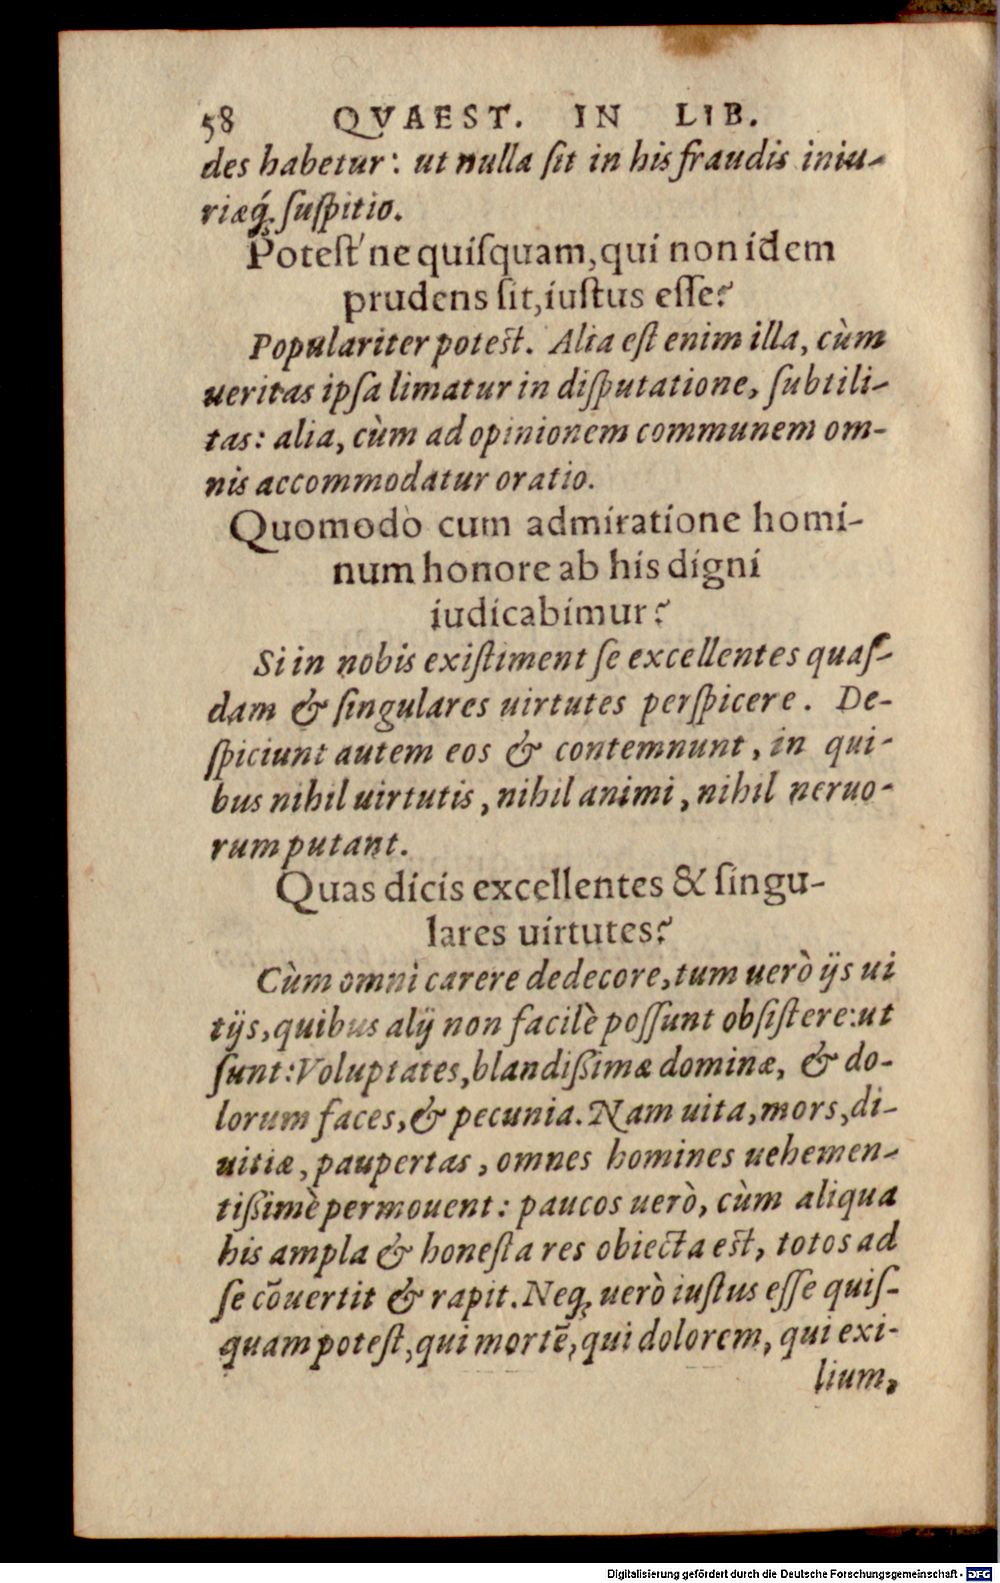 58 QVAEST. IN LIB.
des habetur: ut nulla ſit in his fraudis iniu-
riæq́; ſuſpitio.
Poteſt'ne quiſquam, qui non idem
prudens ſit, iuſtus eſſe?
Populariter poteſt. Alia eſt enim illa, cùm
ueritas ipſa limatur in diſputatione, ſubtili-
tas: alia, cùm ad opinionem communem om-
nis accommodatur oratio.
Quomodò cum admiratione homi-
num honore ab his digni
iudicabimur?
Si in nobis exiſtiment ſe excellentes quaſ-
dam & ſingulares uirtutes perſpicere. De-
ſpiciunt autem eos & contemnunt, in qui-
bus nihil uirtutis, nihil animi, nihil neruo-
rum putant.
Quas dicis excellentes & ſingu-
lares uirtutes?
Cùm omni carere dedecore, tum uerò ijs ui
tijs, quibus alij non facilè poſſunt obſiſtere: ut
ſunt: Voluptates, blandißimæ dominæ, & do-
lorum faces, & pecunia. Nam uita, mors, di-
uitiæ, paupertas, omnes homines uehemen-
tißimè permouent: paucos uerò, cùm aliqua
his ampla & honeſta res obiecta eſt, totos ad
ſe cōuertit & rapit. Neq; uerò iuſtus eſſe quiſ-
quam poteſt, qui mortē, qui dolorem, qui exi-
lium,
Digitalisierung gefördert durch die Deutsche Forschungsgemeinschaft - DFG